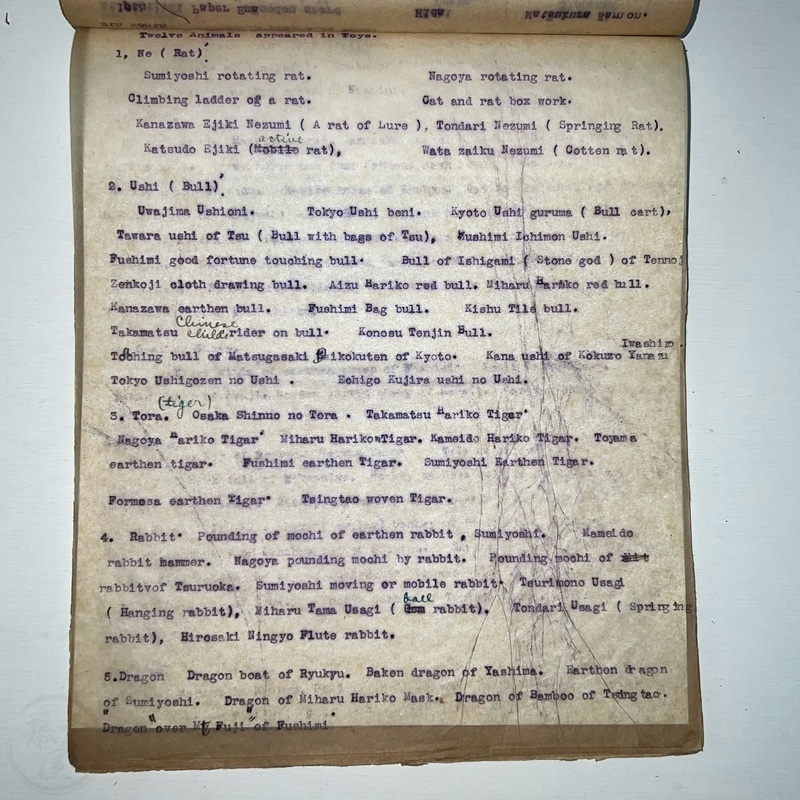 Paper
Hida
Matsukura Samon.
Twelve Animals appeared in Toys.
1, Ne ( Rat)
Sumiyoshi rotating rat. Nagoya rotating rat.
Climbing ladder of a rat. Cat and rat box work.
Kanazawa Ejiki Nezumi ( A rat of Lure ), Tondari Nezumi ( Springing Rat).
active
Katsudo Ejiki (Mobile rat), Wata zaiku Nezumi ( Cotten rat).
2. Ushi ( Bull)
Uwajima Ushioni. Tokyo Ushi beni. Kyoto Ushi guruma ( Bull cart),
Tawara ushi of Tsu ( Bull with bags of Tsu), Mushimi Ichimon Ushi.
Fushimi good fortune touching bull. Bull of Ishigami ( Stone god ) of Tennoj
Zenkoji cloth drawing bull. Aizu Hariko red bull. Miharu Hariko red bull.
Kanazawa earthen bull. Fushimi Bag bull. Kishu Tile bull.
Chinese
Takamatsu child rider on bull. Konosu Tenjin Bull.
Iwashiro.
bull of Matsugasaki ikokuten of Kyoto. Kana ushi of Kokuzo Yanazu
Tokyo Ushigozen no Ushi . Echigo Kujira ushi no Ushi.
(tiger)
3. Tora. Osaka Shinno no Tora . Takamatsu Hariko Tiger
Nagoya Hariko Tigar Miharu Hariko Tigar. Kameido Hariko Tigar. Toyama
earthen tigar. Fushimi earthen Tigar. Sumiyoshi Earthen Tigar.
Formosa earthen Tigar. Tsingtao woven Tigar.
4. Rabbit. Pounding of mochi of earthen rabbit , Sumiyoshi. Kameido
rabbit hammer. Nagoya pounding mochi by rabbit. Pounding mochi of
rabbitvof Tsuruoka. Sumiyoshi moving or mobile rabbit. Tsurimono Usagi
ball
( Hanging rabbit), Miharu Tama Usagi ( Gum rabbit). Tondari Usagi ( Springing
rabbit), Hirosaki Ningyo Flute rabbit.
5.Dragon Dragon boat of Ryukyu. Baken dragon of Yashima. Earthen dragon
of Sumiyoshi. Dragon of Miharu Hariko Mask. Dragon of Bamboo of Tsingtao.
"Dragon "over Mt Fuji" of Fushimi